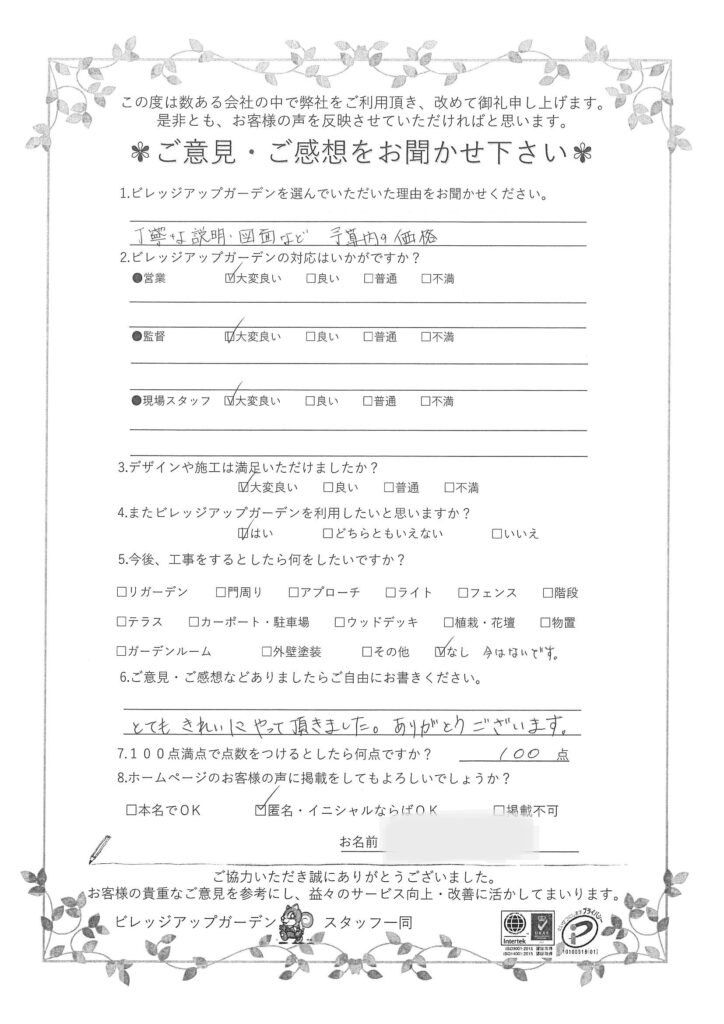 この度は数ある会社の中で弊社をご利用頂き、改めて御礼申し上げます。
是非とも、お客様の声を反映させていただければと思います。
ご意見・ご感想をお聞かせ下さい
1.ビレッジアップガーデンを選んでいただいた理由をお聞かせください。
丁寧な説明・図面など 予算内の価格
2.ビレッジアップガーデンの対応はいかがですか？
●営業 ☑大変良い □良い □普通 □不満
●監督 ☑大変良い □良い □普通 □不満
●現場スタッフ ☑大変良い □良い □普通 □不満
3.デザインや施工は満足いただけましたか？
☑大変良い □良い □普通 □不満
4.またビレッジアップガーデンを利用したいと思いますか？
☑はい □どちらともいえない □いいえ
5.今後、工事をするとしたら何をしたいですか？
□リガーデン □門周り □アプローチ □ライト □フェンス □階段
□テラス □カーポート・駐車場 □ウッドデッキ □植栽・花壇 □物置
□ガーデンルーム □外壁塗装 □その他 ☑なし 今はないです。
6.ご意見・ご感想などありましたらご自由にお書きください。
とても きれいに やって頂きました。ありがとうございます。
7.１００点満点で点数をつけるとしたら何点ですか？ 100 点
8.ホームページのお客様の声に掲載をしてもよろしいでしょうか？
□本名でＯＫ ☑匿名・イニシャルならばＯＫ □掲載不可
お名前
ご協力いただき誠にありがとうございました。
お客様の貴重なご意見を参考にし、益々のサービス向上・改善に活かしてまいります。
ビレッジアップガーデン スタッフ一同
intertek
UKAS
ISO9001:2015 認証取得
ISO14001:2015 認証取得
プライバシー